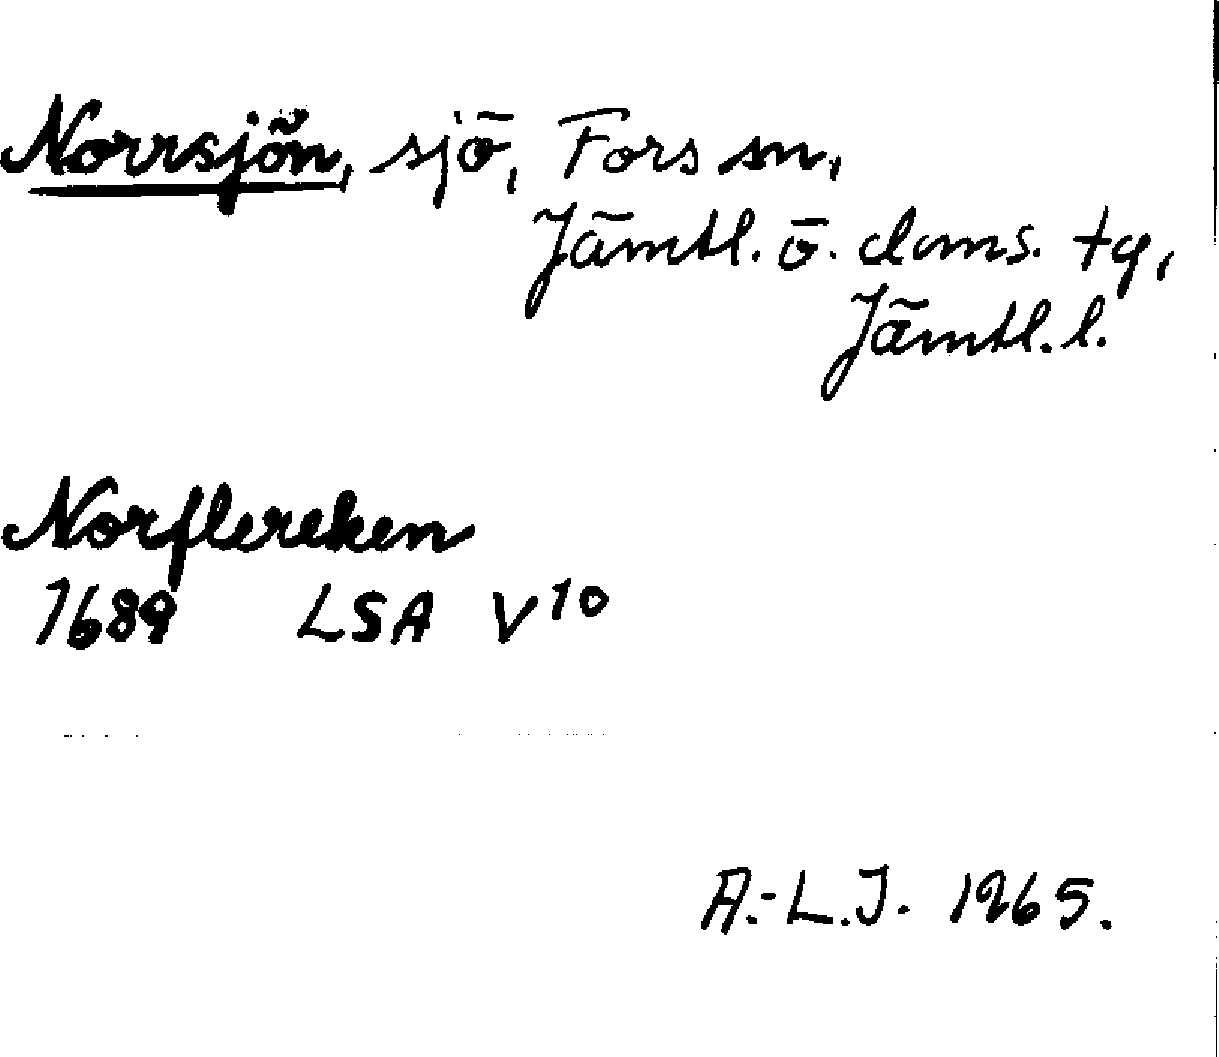 Norrsjön, sjö, Fors sn,
Jämtl. ö. doms. tg,
Jämtl. l.
Norflereken
1689 LSA V10
A.-L.J. 1965.